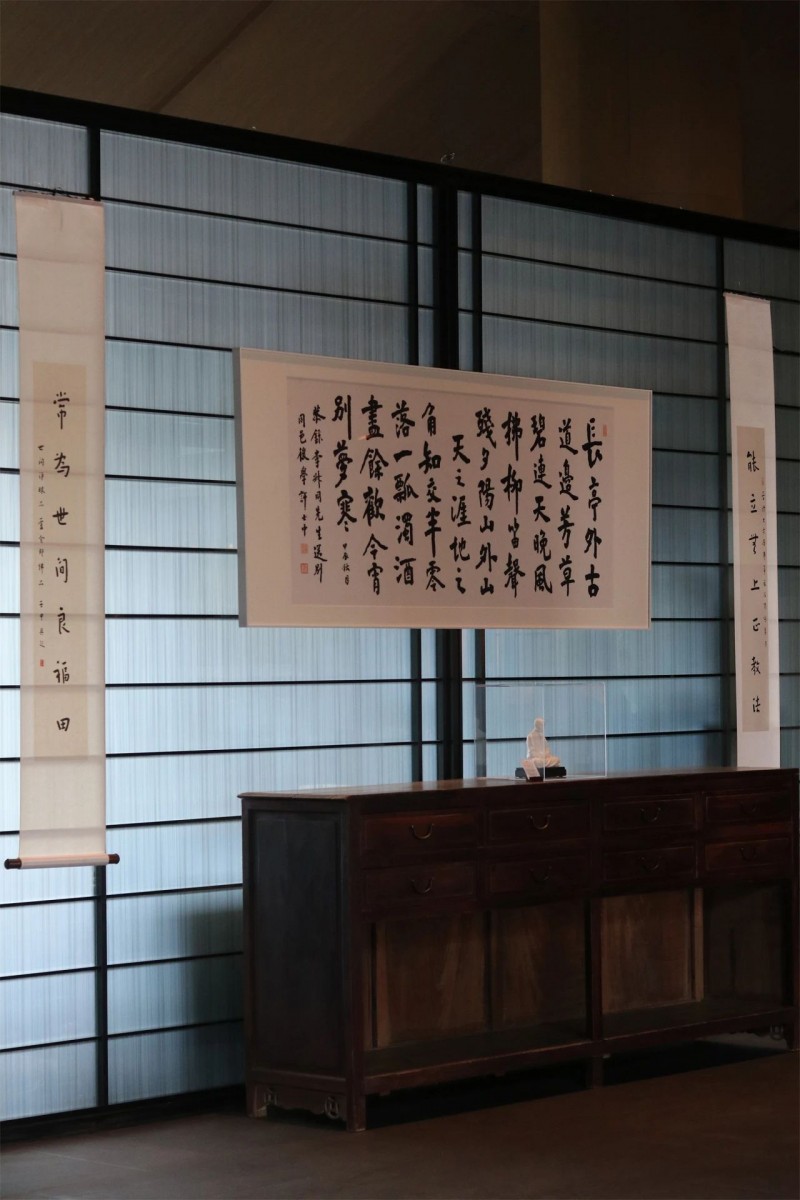 能立無上正教法
長亭外古
道邊芳草
碧連天晚風
拂柳笛聲
殘夕陽山外山
天之涯地之
角知交半零
落一瓢濁酒
盡餘歡今宵
別夢寒
恭錄李叔同先生送別
同邑後學許士中
常為世間良福田